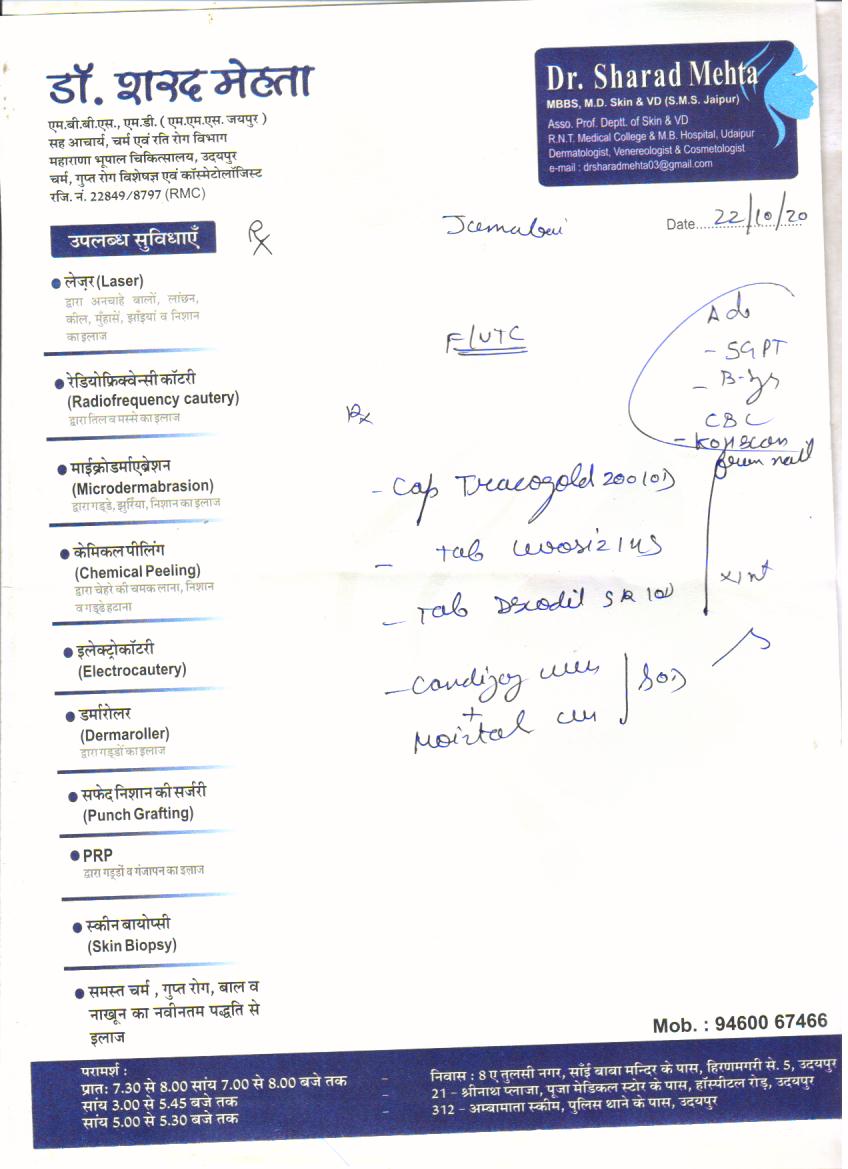 डॉ. शरद मेहता
एम.बी.बी.एस., एम.डी. ( एम.एम.एस. जयपुर )
सह आचार्य, चर्म एवं रति रोग विभाग
महाराणा भूपाल चिकित्सालय, उदयपुर
चर्म, गुप्त रोग विशेषज्ञ एवं कॉस्मेटोलॉजिस्ट
रजि. नं. 22849/8797 (RMC)
Dr. Sharad Mehta
MBBS, M.D. Skin & VD (S.M.S. Jaipur)
Asso. Prof. Deptt. of Skin & VD
R.N.T. Medical College & M.B. Hospital, Udaipur
Dermatologist, Venereologist & Cosmetologist
e-mail : drsharadmehta03@gmail.com
Date 22/10/20
Rx
उपलब्ध सुविधाएँ
लेज़र (Laser)
द्वारा अनचाहे बालों, लांछन,
कील, मुँहासे, झाँइयां व निशान
का इलाज
रेडियोफ्रिक्वेन्सी कॉटरी
(Radiofrequency cautery)
द्वारा तिल व मस्से का इलाज
माईक्रोडर्माएब्रेशन
(Microdermabrasion)
द्वारा गड्डे, झुर्रिया, निशान का इलाज
केमिकल पीलिंग
(Chemical Peeling)
द्वारा चेहरे की चमक लाना, निशान
व गड्डे हटाना
इलेक्ट्रोकॉटरी
(Electrocautery)
डर्मारोलर
(Dermaroller)
द्वारा गड्डों का इलाज
सफेद निशान की सर्जरी
(Punch Grafting)
PRP
द्वारा गड्डों व गंजापन का इलाज
स्कीन बायोप्सी
(Skin Biopsy)
समस्त चर्म , गुप्त रोग, बाल व
नाखून का नवीनतम पद्धति से
इलाज
F/UTC
- SGPT
CBC
Rx
- Cap Tracogold 200 (OD)
- Tab
- Tab SR
- Candizoy
+
Moiztal
Mob. : 94600 67466
परामर्श :
प्रात: 7.30 से 8.00 सांय 7.00 से 8.00 बजे तक
सांय 3.00 से 5.45 बजे तक
सांय 5.00 से 5.30 बजे तक
– निवास : 8 ए तुलसी नगर, साँई बाबा मन्दिर के पास, हिरणमगरी से. 5, उदयपुर
– 21 – श्रीनाथ प्लाजा, पूजा मेडिकल स्टोर के पास, हॉस्पीटल रोड़, उदयपुर
– 312 – अम्बामाता स्कीम, पुलिस थाने के पास, उदयपुर